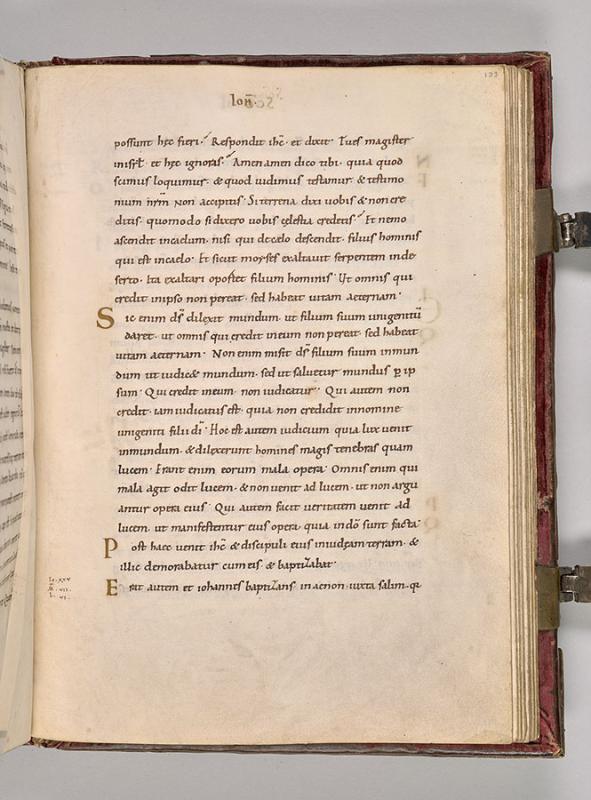 193
Ioh̄.
possunt hęc fieri. Respondit ih̄c. et dixit. Tu es magister
in isr̄l. et hęc ignoras. Amen amen dico tibi. quia quod
scimus loquimur. & quod uidimus testamur. & testimo
nium nr̄m non accipitis. Si terrena dixi uobis & non cre
ditis. quomodo si dixero uobis cęlestia credetis. Et nemo
ascendit in caelum. nisi qui de caelo descendit. filius hominis
qui est in caelo. Et sicut moyses exaltauit serpentem in de
serto. Ita exaltari oportet filium hominis. Ut omnis qui
credit in ipso non pereat. sed habeat uitam aeternam.
Sic enim ds̄ dilexit mundum. ut filium suum unigenitū
daret. ut omnis qui credit in eum non pereat. sed habeat
uitam aeternam. Non enim misit ds̄ filium suum in mun
dum ut iudic& mundum. sed ut saluetur mundus ꝑ ip
sum. Qui credit in eum. non iudicatur. Qui autem non
credit. iam iudicatus est. quia non credidit in nomine
unigeniti filii dī. Hoc est autem iudicium quia lux uenit
in mundum. & dilexerunt homines magis tenebras quam
lucem. Erant enim eorum mala opera. Omnis enim qui
mala agit odit lucem. & non uenit ad lucem. ut non argu
antur opera eius. Qui autem facit ueritatem uenit ad
lucem. ut manifestentur eius opera. quia in dō sunt facta.
Post haec uenit ih̄c & discipuli eius in iudęam terram. &
illic demorabatur cum eis & baptizabat.
Erat autem et iohannes baptizans in aenon. iuxta salim. q̄